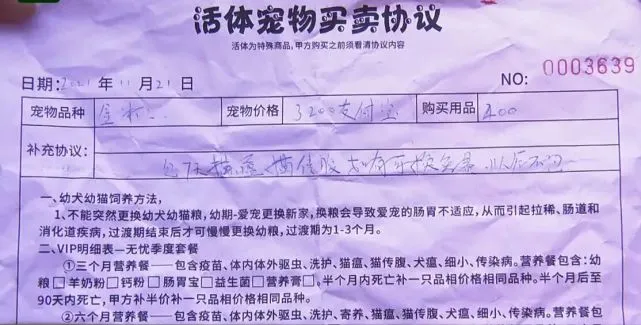 活体宠物买卖协议
活体为特殊商品，甲方购买之前须看清协议内容
日期：2021年11月21日 NO: 0003639
宠物品种 金 宠物价格 3200支付宝 购买用品 400
补充协议：
一、幼犬幼猫饲养方法，
1、不能突然更换幼犬幼猫粮，幼期-爱宠更换新家，换粮会导致爱宠的肠胃不适应，从而引起拉稀、肠道和
消化道疾病，过渡期结束后才可慢慢更换幼粮，过渡期为1-3个月。
二、VIP明细表—无忧季度套餐
①三个月营养餐——包含疫苗、体内体外驱虫、洗护、猫瘟、猫传腹、犬瘟、细小、传染病。营养餐包含：幼
粮□羊奶粉□钙粉□肠胃宝□益生菌□营养膏□。半个月内死亡补一只品相价格相同品种。半个月后至
90天内死亡，甲方补半价补一只品相价格相同品种。
②六个月营养餐——包含疫苗、体内体外驱虫、洗护、寄养、猫瘟、猫传腹、犬瘟、细小、传染病。营养餐包